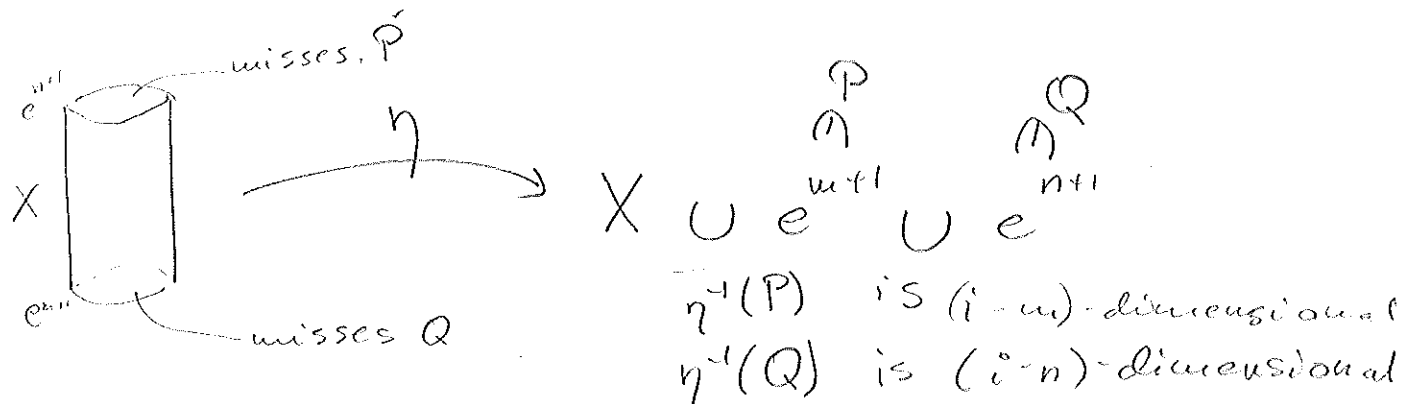 misses P
e^{n+1}
X
e^{m+1}
misses Q
η
P Q
∩ ∩
X ∪ e^{m+1} ∪ e^{n+1}
η^{-1}(P) is (i-m)-dimensional
η^{-1}(Q) is (i-n)-dimensional